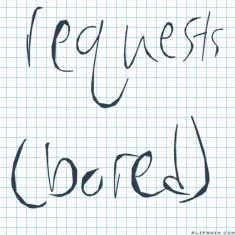 requests
(bored)
FLIPANIM.COM